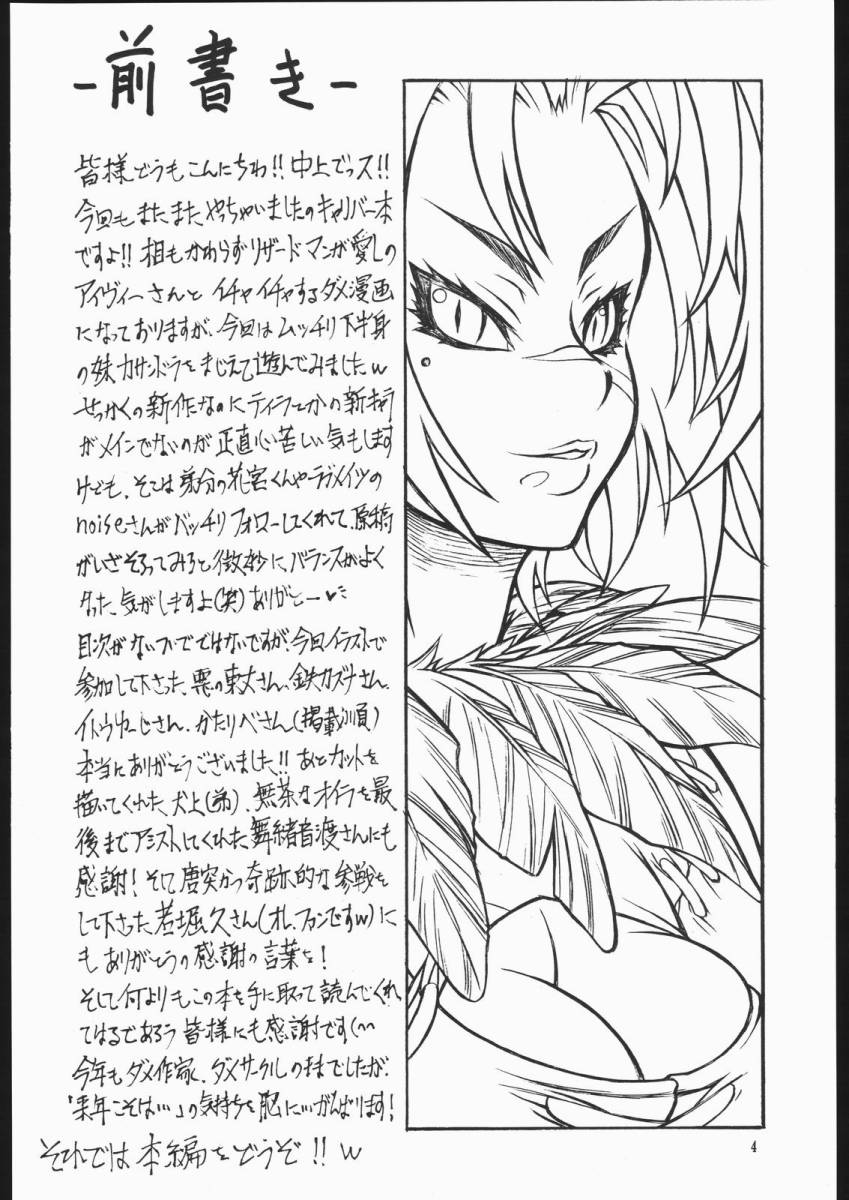 -前書き-
皆様どうもこんにちわ!!中上でっス!!
今回もまたまたやっちゃいましたのキャリバー本
ですよ!!相もかわらずリザードマンが愛しの
アイヴィーさんとイチャイチャするダメ漫画
になっておりますが、今回はムッチリ下半身
の妹カサンドラをまじえて遊んでみましたw
せっかくの新作なのにティラとかの新キャラ
がメインでないのが正直心苦しい気もします
けども、そこは弟分の花宮くんやラブメイツの
noiseさんがバッチリフォローしてくれて、原稿
がいざそろってみると微妙に、バランスがよく
なった気がしますよ(笑)ありがとー♥
目次がないついでではないですが、今回イラストで
参加して下さった、悪の東丈さん、鉄カズナさん、
イトウゆーじさん、かたりべさん(掲載順)
本当にありがとうございました!!あとカットを
描いてくれた、犬上(弟)、無茶なオイラを最
後までアシストしてくれた舞緒音渡さんにも
感謝!そして唐突かつ奇跡的な参戦を
して下さった若堀久さん(オレ、ファンですw)に
もありがとうの感謝の言葉を!
そして何よりもこの本を手に取って読んでくれ
てはるであろう皆様にも感謝です(^^
今年もダメ作家、ダメサークルのままでしたが、
「来年こそは…」の気持ちを胸に…がんばります!
それでは本編をどうぞ!!w
4